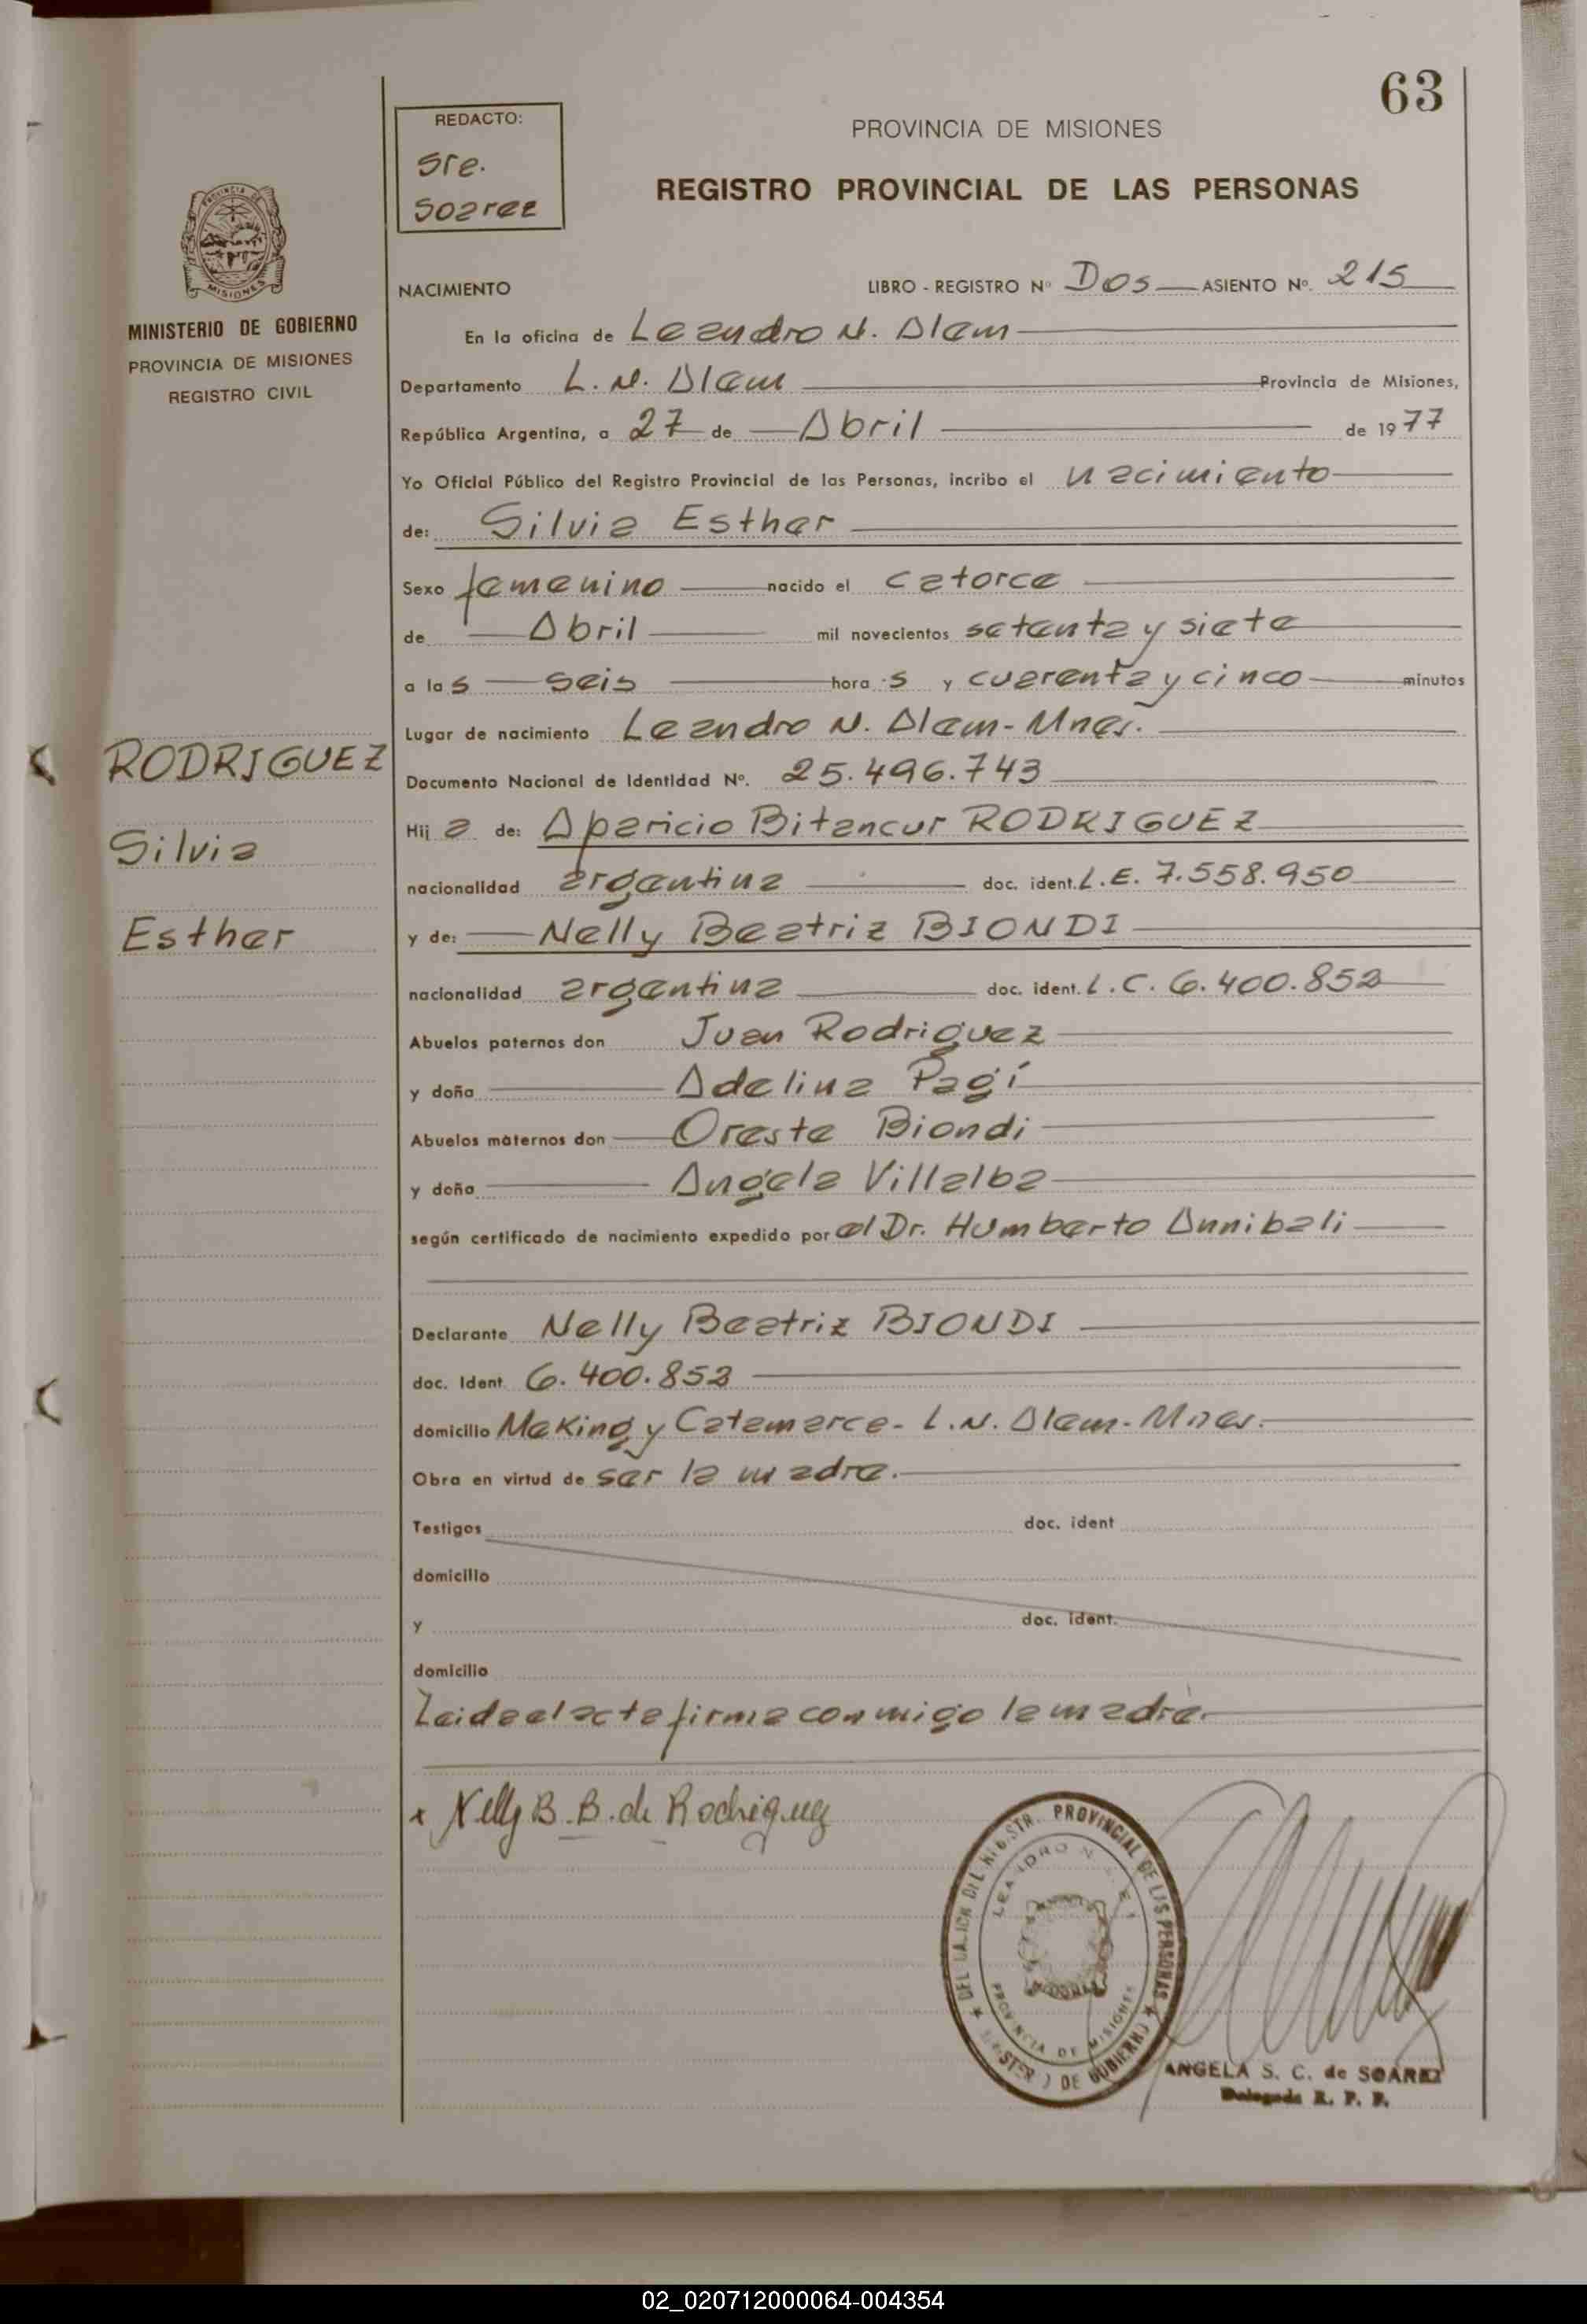 63
REDACTO:
Sra.
Soarez
PROVINCIA DE MISIONES
REGISTRO PROVINCIAL DE LAS PERSONAS
MISIONES
MINISTERIO DE GOBIERNO
PROVINCIA DE MISIONES
REGISTRO CIVIL
NACIMIENTO LIBRO - REGISTRO Nº Dos ASIENTO Nº. 215
En la oficina de Leandro N. Alem
Departamento L. N. Alem Provincia de Misiones,
República Argentina, a 27 de Abril de 1977
Yo Oficial Público del Registro Provincial de las Personas, incribo el nacimiento
de: Silvia Esther
Sexo femenino nacido el catorce
de Abril mil novecientos setenta y siete
a las seis hora s y cuarenta y cinco minutos
Lugar de nacimiento Leandro N. Alem - Mnes.
RODRIGUEZ
Silvia
Esther
Documento Nacional de Identidad Nº. 25.496.743
Hij a de: Aparicio Bitancur RODRIGUEZ
nacionalidad argentina doc. ident. L.E. 7.558.950
y de: Nelly Beatriz BIONDI
nacionalidad argentina doc. ident. L.C. 6.400.852
Abuelos paternos don Juan Rodriguez
y doña Adelina Pagí
Abuelos maternos don Oreste Biondi
y doña Angela Villalba
según certificado de nacimiento expedido por el Dr. Humberto Annibali
Declarante Nelly Beatriz BIONDI
doc. Ident. 6.400.852
domicilio Making y Catamarca - L.N. Alem - Mnes.
Obra en virtud de ser la madre.
Testigos doc. ident
domicilio
y doc. ident.
domicilio
Leida el acta firma conmigo la madre.
x Nelly B. B. de Rodriguez
PROVINCIAL DE LAS PERSONAS
LEANDRO N.
PROVINCIA DE MISIONES
DE GOBIERNO
ANGELA S. C. de SOAREZ
Delegada R. P. P.
02_020712000064-004354